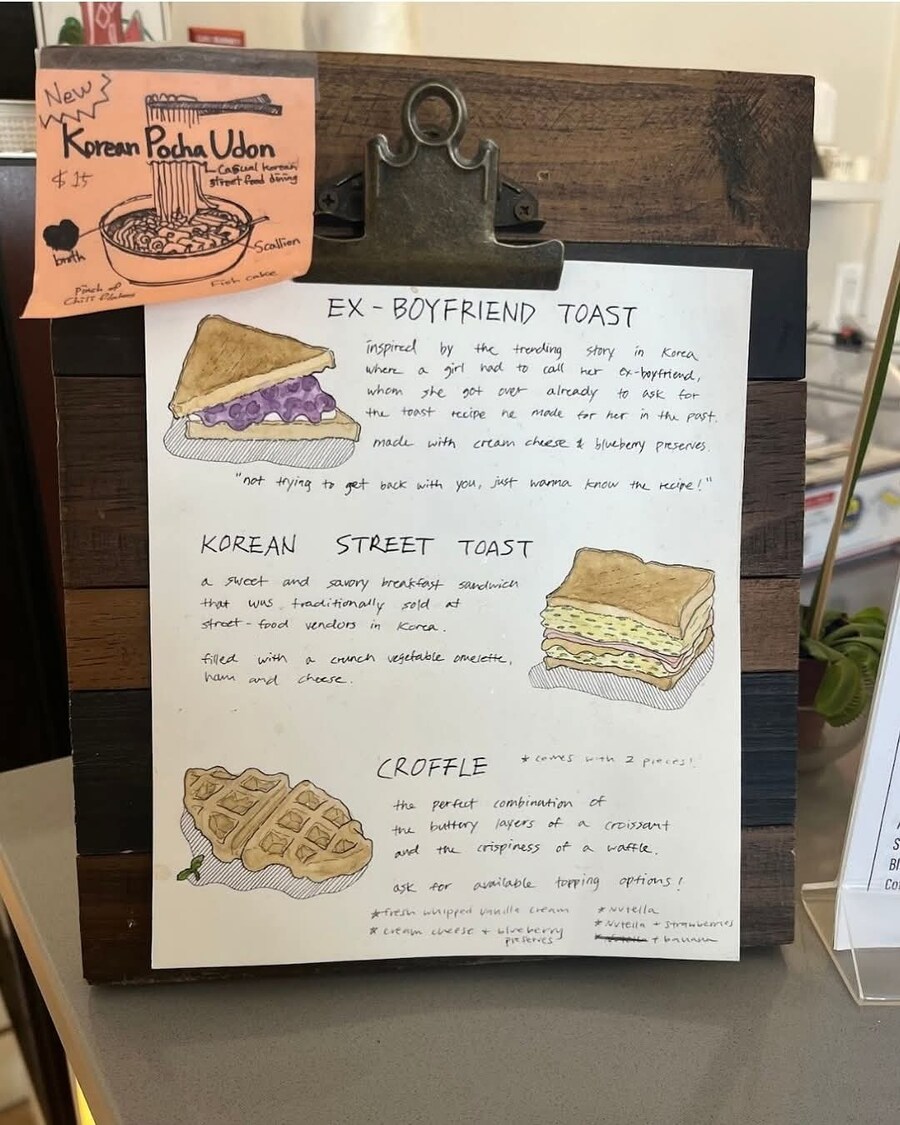 New
Korean Pocha Udon
$15
Casual korean
street food dining
broth
Scallion
Fish cake
Pinch of
Chili flakes
EX-BOYFRIEND TOAST
inspired by the trending story in Korea
where a girl had to call her ex-boyfriend,
whom she got over already to ask for
the toast recipe he made for her in the past.
made with cream cheese & blueberry preserves.
"not trying to get back with you, just wanna know the recipe!"
KOREAN STREET TOAST
a sweet and savory breakfast sandwich
that was traditionally sold at
street-food vendors in Korea.
filled with a crunch vegetable omelette,
ham and cheese.
CROFFLE
*comes with 2 pieces!
the perfect combination of
the buttery layers of a croissant
and the crispiness of a waffle.
ask for available topping options!
*fresh whipped vanilla cream
*cream cheese + blueberry
preserves
*Nutella
*Nutella + strawberries
+ banana